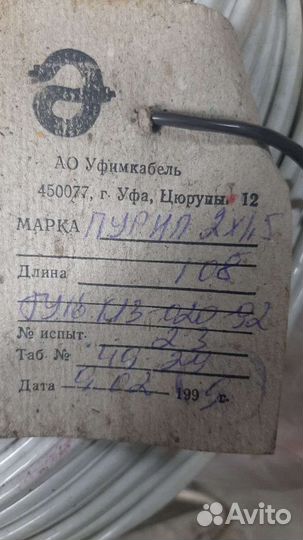 АО Уфимкабель
450077, г. Уфа, Цюрупы, 12
МАРКА ПУРНП 2х1,5
Длина 105
ТУ16 К13-020-92
№ испыт. 23
Таб. № 49 24
Дата 9.02 1995 г.
Avito